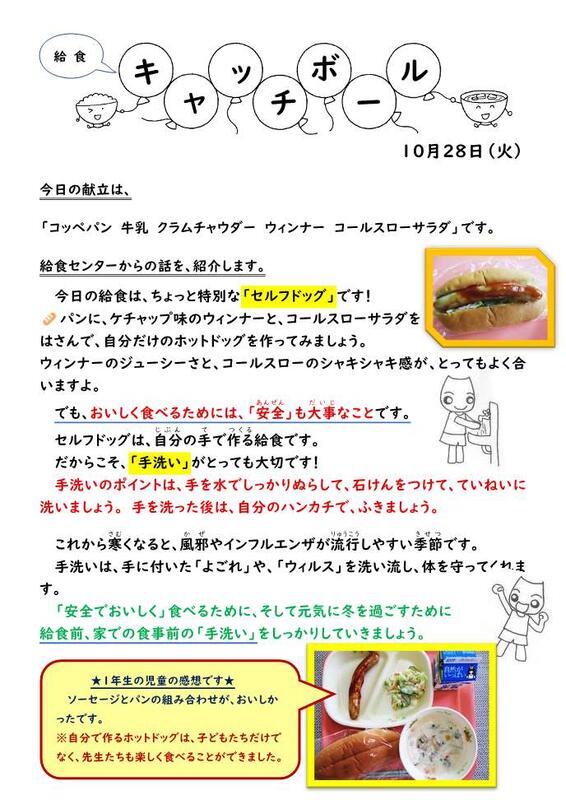 給食
キャッチボール
10月28日(火)
今日の献立は、
「コッペパン 牛乳 クラムチャウダー ウィンナー コールスローサラダ」です。
給食センターからの話を、紹介します。
今日の給食は、ちょっと特別な「セルフドッグ」です!
🥖パンに、ケチャップ味のウィンナーと、コールスローサラダを
はさんで、自分だけのホットドッグを作ってみましょう。
ウィンナーのジューシーさと、コールスローのシャキシャキ感が、とってもよく合
いますよ。
でも、おいしく食べるためには、「安全」も大事なことです。
セルフドッグは、自分の手で作る給食です。
だからこそ、「手洗い」がとっても大切です!
手洗いのポイントは、手を水でしっかりぬらして、石けんをつけて、ていねいに
洗いましょう。 手を洗った後は、自分のハンカチで、ふきましょう。
これから寒くなると、風邪やインフルエンザが流行しやすい季節です。
手洗いは、手に付いた「よごれ」や、「ウィルス」を洗い流し、体を守ってくれま
す。
「安全でおいしく」食べるために、そして元気に冬を過ごすために
給食前、家での食事前の「手洗い」をしっかりしていきましょう。
★1年生の児童の感想です★
ソーセージとパンの組み合わせが、おいしか
ったです。
※自分で作るホットドッグは、子どもたちだけで
なく、先生たちも楽しく食べることができました。